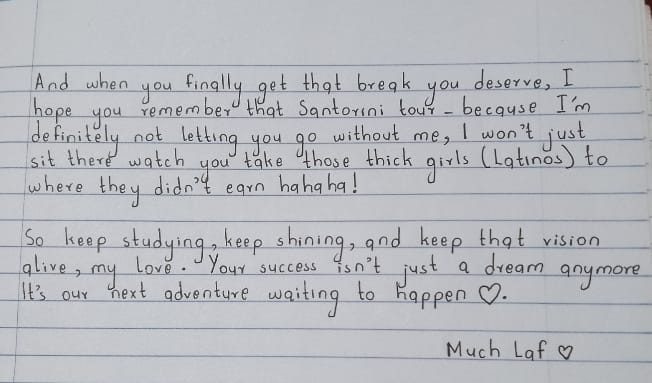 And when you finally get that break you deserve, I
hope you remember that Santorini tour - because I'm
definitely not letting you go without me, I won't just
sit there watch you take those thick girls (Latinos) to
where they didn't earn hahaha!
So keep studying, keep shining, and keep that vision
alive, my love. Your success isn't just a dream anymore
It's our next adventure waiting to happen ♡.
Much Laf ♡